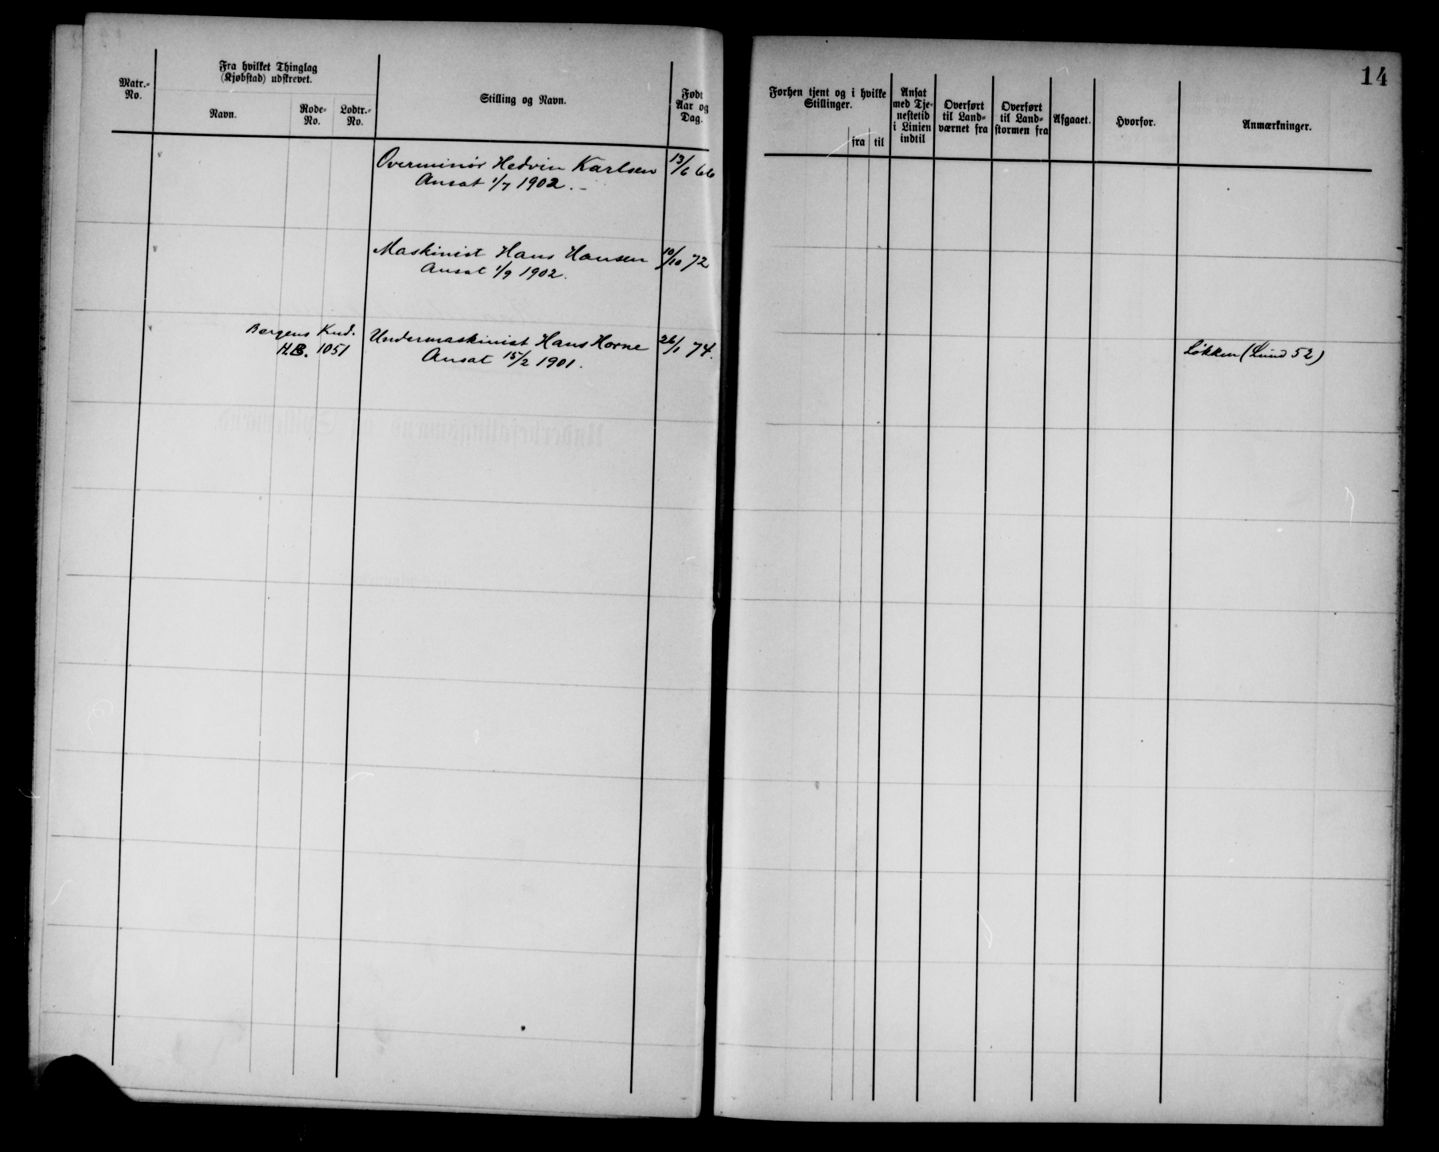 14
Matr.-
No.
Fra hvilket Thinglag
(Kjøbstad) udskrevet.
Navn.
Rode-
No.
Lodtr.-
No.
Stilling og Navn.
Født
Aar og
Dag.
Forhen tjent og i hvilke
Stillinger.
fra
til
Ansat
med Tje-
nestetid
i Linien
indtil
Overført
til Land-
værnet fra
Overført
til Land-
stormen fra
Afgaaet.
Hvorfor.
Anmærkninger.
Overminør Hedvin Karlsen 13/6 66
Ansat 1/7 1902.
Maskinist Hans Hansen 10/10 72
Ansat 1/9 1902.
Bergens Krd. Undermaskinist Hans Horne 26/1 74.
H.B. 1051 Ansat 15/2 1901.
Løkken (Lund 52)
Underbefalingsmænd og Spillemænd.